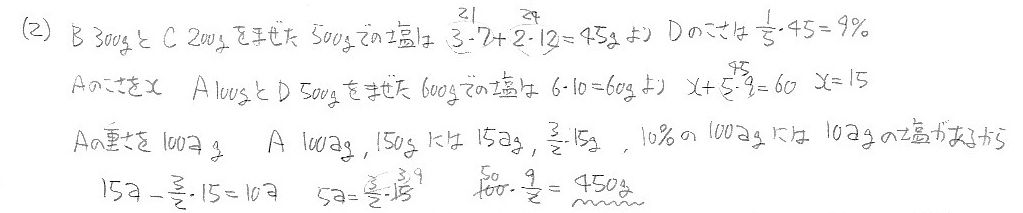 (2) B 300gとC 200gをまぜた500gでの塩は 3・7+2・12=45gより Dのこさは 1/5・45=9% 21 24
Aのこさをx A100gとD 500gをまぜた600gでの塩は 6・10=60gより x+5・9=60 x=15 45
Aの重さを100ag A 100ag, 150gには 15ag, 3/2・15g, 10%の100agには10agの塩があるから
15a-3/2・15=10a 5a=3/2・15 3 9 100・9/2=450g 50